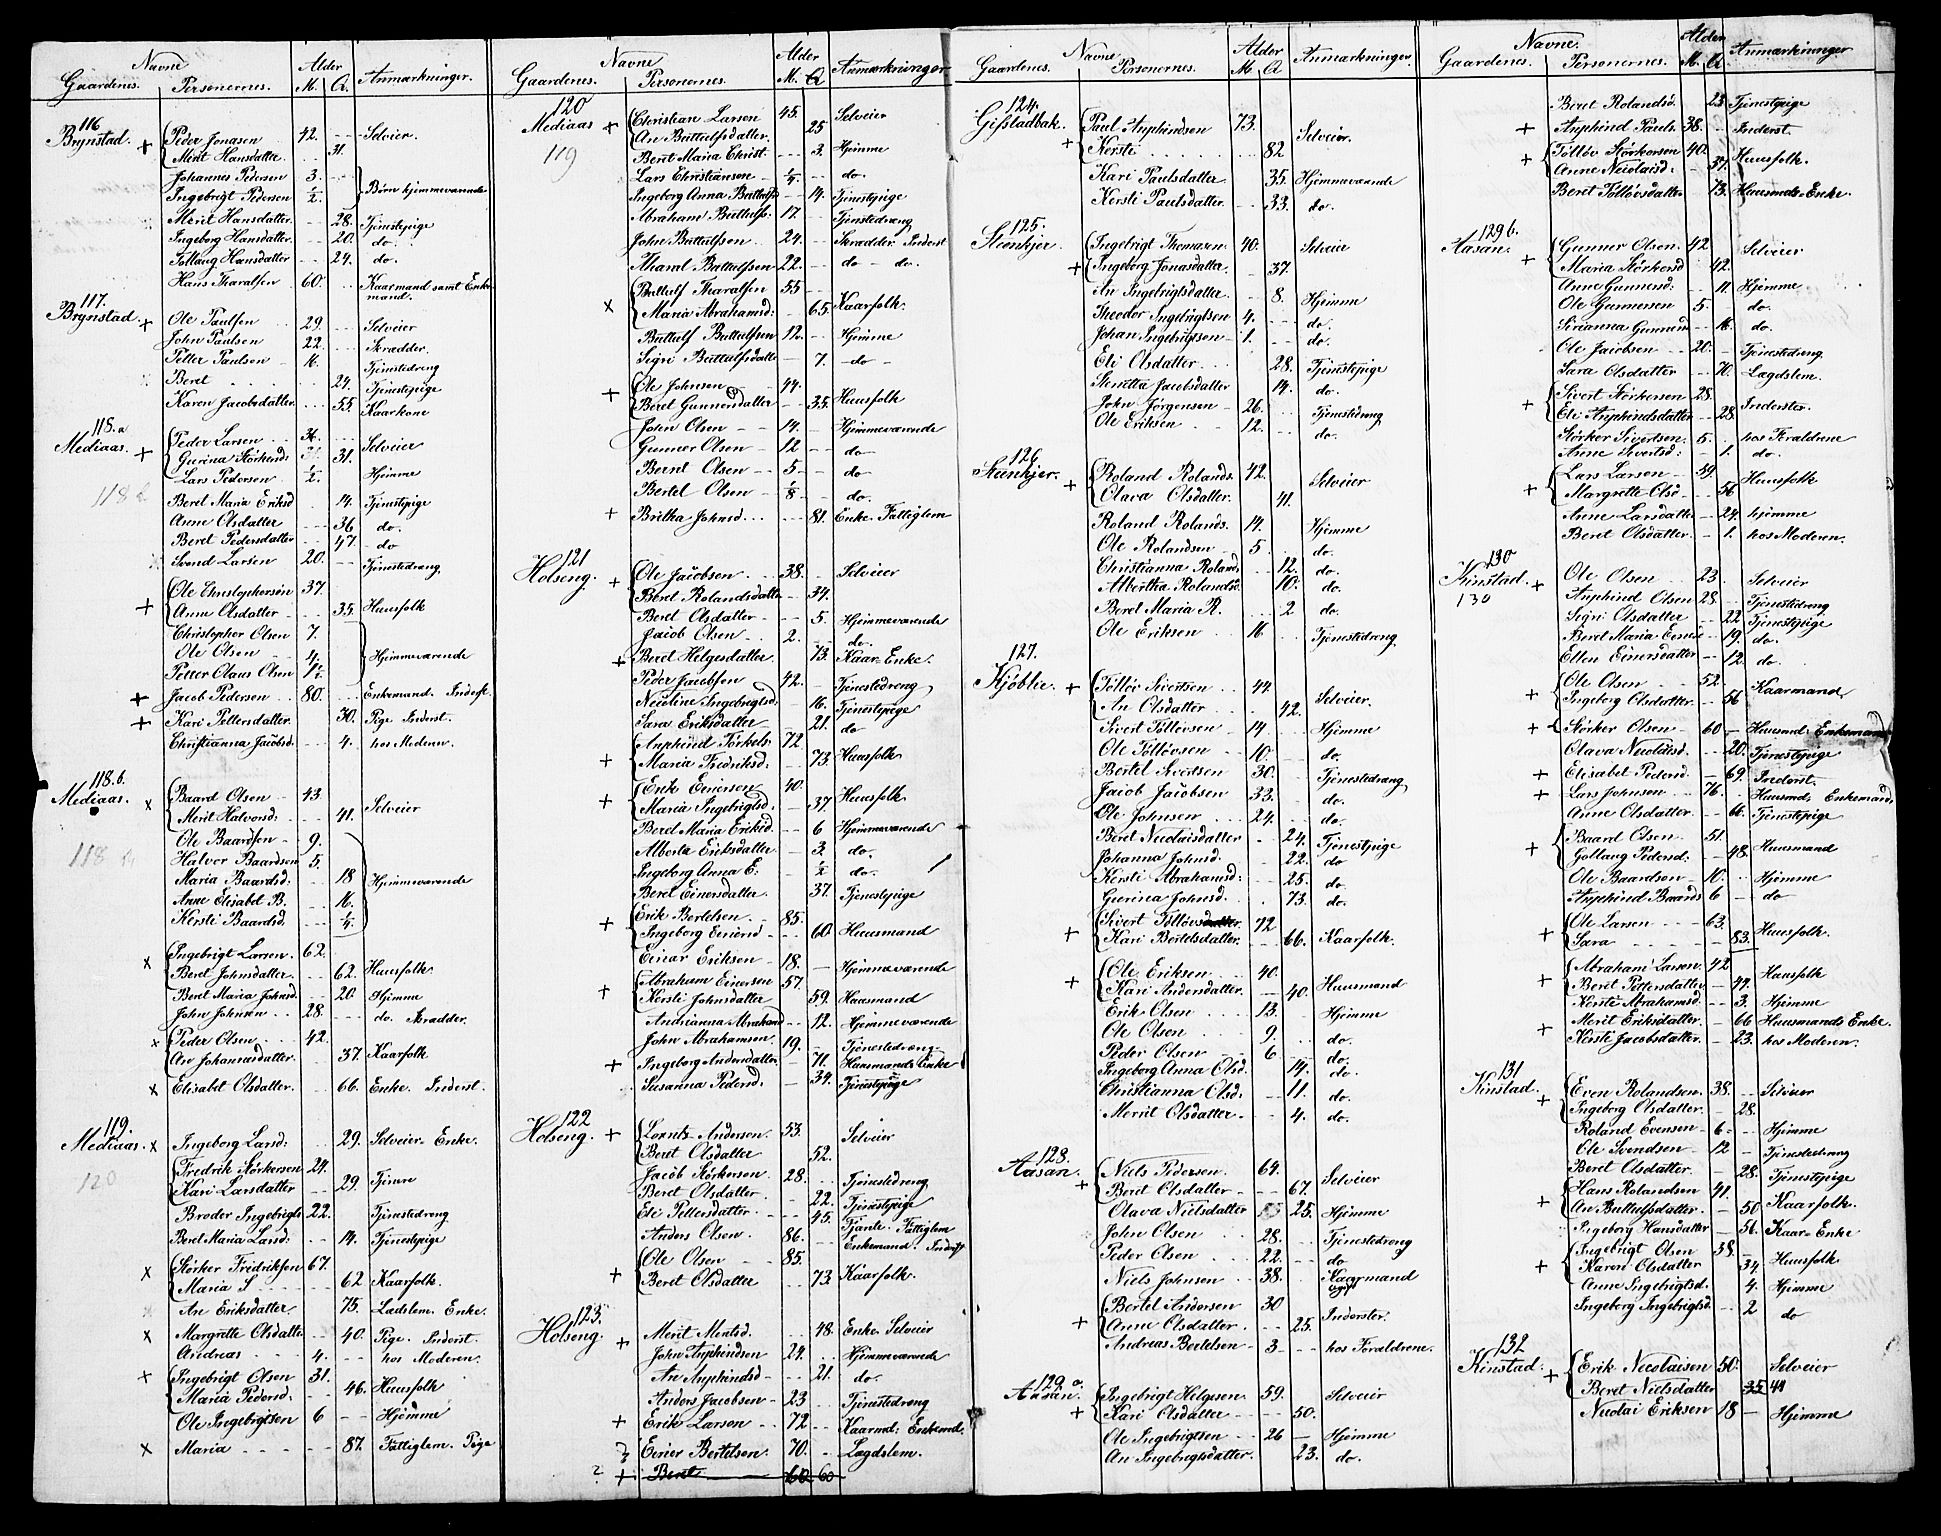 Navne
Alder
Gaardenes. Personernes. M. Q. Anmærkninger.
116
Brynstad. + Peder Jonasen 42. Selveier.
Merit Hansdatter. 31.
Johannes Pedersen 3.
Ingebrigt Pedersen ½. Børn hjemmeværende
Merit Hansdatter. 28. Tjenestepige
Ingeborg Hansdatter. 20. do.
Sollaug Hansdatter 24. do.
Hans Tharalsen 60. Kaarmand samt Enke
mand.
117.
Brynstad. + Ole Paulsen 29. Selveier
John Paulsen 22. Skrædder.
Petter Paulsen 16. Tjenestedreng
Beret 24. Tjenestepige
Karen Jacobsdatter 55. Kaarkone
118.a
Mediaas. + Peder Larsen 34.
Gurina Størkersd. 31. Selveier
Lars Pedersen ½. Hjemme
Beret Maria Eriksd 14. Tjenestepige
Anne Olsdatter 36 do.
Beret Pedersdatter 47. do
Svend Larsen 20. Tjenestedreng
Ole Christophersen 37.
+ Anne Olsdatter 35. Huusfolk
Christopher Olsen 7.
Ole Olsen 4. Hjemmeværende
Petter Claus Olsen
+ Jacob Pedersen 80. Enkemand. Inderst.
+ Kari Pettersdatter. 30. Pige Inderst.
Christianna Jacobsd. 4. hos Moderen.
118.b.
Mediaas. x Baard Olsen 43.
Merit Halvorsd. 41. Selveier
118
Ole Baardsen 9.
Halvor Baardsen 5.
Maria Baardsd: 18 Hjemmeværende
Anne Elisabet B. 16.
Kersti Baardsd. ¼.
x Ingebrigt Larsen. 62.
Beret Johnsdatter. 62. Huusfolk.
Beret Maria Johnsd. 20. Hjemme
John Johnsen 28. do. Skrædder.
x Peder Olsen 42.
An Johannesdatter. 37. Kaarfolk
x Elisabet Olsdatter. 66. Enke. Inderst.
119.
Mediaas. x Ingeborg Larsd: 29. Selveier-Enke.
120
Fredrik Størkersen 24.
Kari Larsdatter 29. Tjener
Broder Ingebrigts 22. Tjenestedreng
Beret Maria Larsd: 14. Tjenestepige
x Størker Fredriksen 67.
Maria S 62 Kaarfolk.
An Eriksdatter 75. Ladslem. Enke.
x Margrette Olsdatter 40. Pige. Inderst.
Andreas 4. hos Moderen.
+ Ingebrigt Olsen 31.
Maria Pedersd. 46. Huusfolk
Ole Ingebrigtsen 6 Hjemme
x Maria 87. Fattiglem. Pige
Navne
Alder
Gaardenes. Personernes. M. Q. Anmærkninger
120
Mediaas + Christian Larsen 45. Selveier
An Buttulfsdatter 25
119 Beret Maria Christ. 3. Hjemme
Lars Christiansen ¼. do.
Ingeborg Anna Buttulfs 14. Tjenestepige
Abraham Buttulfs. 17. Tjenestedreng
John Buttulfsen 24. Skrædder. Inderst
Tharal Buttulfsen 22. do do.
x Buttulf Tharalsen 55
Maria Abrahamsd: 65. Kaarfolk.
Buttulf Buttulfsen 12. Hjemme
Sigri Buttulfsdatter 7. do
+ Ole Johnsen 44.
Beret Gunnersdatter 35. Huusfolk
John Olsen 14. Hjemmeværende
Gunner Olsen 12 do
Bernt Olsen 5 do
Bertel Olsen ⅛ do.
+ Britha Johnsd. 81. Enke. Fattiglem
121
Holseng. + Ole Jacobsen. 38. Selveier
Beret Rolandsdatter 34.
Beret Olsdatter 5. Hjemmeværende
Jacob Olsen 2. do.
+ Beret Helgesdatter. 73. Kaar-Enke.
Peder Jacobsen 42. Tjenestedreng
Nicoline Ingebrigtsd. 16. Tjenestepige
Sara Eriksdatter 21. do
+ Anphind Torkels. 72.
Maria Fredriksd: 73. Huusfolk
+ Erik Einersen 40.
Maria Ingebrigtsd. 37. Huusfolk
Beret Maria Eriksd. 6 Hjemmeværende
Alberta Eriksdatter 3. do.
Ingeborg Anna E: ½ do.
Beret Einersdatter 37. Tjenestepige
+ Erik Bertelsen. 85.
Ingeborg Einersd 60. Huusmand
Einar Eriksen 18. Hjemmeværende
+ Abraham Einersen 57.
Kersti Johnsdatter 59. Huusmand
Andrianna Abrahamsd. 12. Hjemmeværende
John Abrahamsen. 19. Tjenestedreng
+ Ingeborg Andersdatter 71. Huusmands Enke
Susanna Pedersd. 34. Tjenestepige
122
Holseng. + Lorntz Andersen. 53. Selveier
Beret Olsdatter 52.
Jacob Størkersen 28. Tjenestedreng
Beret Olsdatter. 22. Tjenestepige
Ele Pettersdatter 45. Tjante. Fattiglem
Anders Olsen 86. Enkemand. Inderst
+ Ole Olsen 85.
Beret Olsdatter 73 Kaarfolk.
123.
Holseng. + Merit Mentsd. 48. Enke Selveier
John Anphindsen 24. Hjemmeværende
An Anphindsd 21. do.
Anders Jacobsen 23 Tjenestedreng
+ Erik Larsen 72 Kaarmd: Enkemd.
Einer Bertelsen. 70. Lægdslem.
? + Beret 60 60
Navne
Alder
Gaardenes. Personernes. M. Q Anmærkninger.
124.
Gifstadbak. + Paul Anphindsen 73. Selveier.
Kersti 82
Kari Paulsdatter 35. Hjemmeværende
Kersti Paulsdatter 33. do.
125.
Steenkjer. + Ingebrigt Thomasen 40. Selveier
Ingeborg Jonasdatter. 37.
An Ingebrigtsdatter. 8. Hjemme
Theodor Ingebrigtsen 4. do.
Johan Ingebrigtsen 1. do.
Eli Olsdatter 28. Tjenestepige
Steretta Jacobsdatter 14. do.
John Jørgensen 26. Tjenestedreng
Ole Eriksen 12. do.
126
Steenkjer. + Roland Rolands. 42. Selveier
Olava Olsdatter. 41.
Roland Rolands. 14. Hjemme
Ole Rolandsen 5. do.
Christianna Rolands 12. do.
Albertha Rolandsd. 10. do.
Beret Maria R. 2 do.
Ole Eriksen 16 Tjenestedreng
127.
Kjøblie. + Tølløv Sivertsen 44. Selveier.
An Olsdatter 42.
Sivert Tølløvsen 14 Hjemme
Ole Tølløvsen 10. do.
Bertel Sivertsen 30. Tjenestedreng
Jacob Jacobsen 33. do.
Ole Johnsen 24. do.
Beret Nicolaisdatter 24. Tjenestepige
Johanna Johnsd. 22. do
Kersti Abrahamsd: 25. do.
Gurina Johnsd. 73. do.
+ Sivert Tølløvsdatter 72
Kari Bertelsdatter. 66. Kaarfolk.
+ Ole Eriksen 40.
Kari Andersdatter. 40. Huusmand
Erik Olsen 13. Hjemme
Ole Olsen 9. do.
Peder Olsen 6 do.
Ingeborg Anna Olsd. 14. do.
Christianna Olsd. 11. do
Merit Olsdatter. 4. do.
128.
Aasan. + Niels Pedersen. 64. Selveier
Beret Olsdatter 67.
Olava Nielsdatter 25. Hjemme
John Olsen 28. Tjenestedreng
Peder Olsen 22. do
Niels Johnsen 38. Kaarmand
+ Bertel Andersen 30
Anne Olsdatter. 25. Inderster.
Andreas Bertelsen 3 hos Foraldrene.
129 a.
Aasan. + Ingebrigt Helgesen 59. Selveier
Kari Olsdatter 50.
Ole Ingebrigtsen 26 Hjemme
An Ingebrigtsdatter. 23. do.
Navne.
Alder
Gaardenes. Personernes. M. Q. Anmærkninger
Beret Rolandsd. 25 Tjenestepige
+ Anphind Pauls. 38. Inderst.
+ Tølløv Størkersen 40.
Anne Nicolaisd. 37. Huusfolk.
Beret Tølløvsdatter 73. Huusmands-Enke.
129 b.
Aasan. + Gunner Olsen 42. Selveier
Maria Størkersd 42.
Anne Gunnersd: 11. Hjemme
Ole Gunnersen 5. do.
Sirianna Gunnersd 16. do.
Ole Jacobsen 20. Tjenestedreng
Sara Olsdatter 70. Lægdslem.
+ Sivert Størkersen 28.
Eli Anphindsdatter 28. Inderster.
Størker Sivertsen. 5. hos Foraldrene
Anne Sivertsd: 1. do.
+ Lars Larsen 49.
Margrette Olsd. 56 Huusfolk
Anne Larsdatter 24. hjemme
Beret Olsdatter. 1. hos Moderen.
130
Kinstad. + Ole Olsen 23. Selveier
130 Anphind Olsen 28. Tjenestedreng
Sigri Olsdatter 22 Tjenestepige
Beret Maria 19. do.
Ellen Einersdatter 12. do.
+ Ole Olsen 52.
Ingeborg Olsdatter. 56 Kaarmand
+ Størker Olsen 60 Huusmd. Enkemand
Olava Nicolaisd. 20. Tjenestepige
+ Elisabet Pedersd. 69. Inderst.
+ Lars Johnsen 76. Huusmd: Enkemand.
Anne Olsdatter 66. Tjenestepige
+ Baard Olsen 51.
Gollaug Pedersd: 48. Huusmand
Ole Baardsen 10. Hjemme
Anphind Baards 6 do
+ Ole Larsen 63.
Sara 83. Huusfolk.
+ Abraham Larsen. 42
Beret Pettersdatter 44. Huusfolk
Kersti Abrahamsd. 3. Hjemme
+ Merit Eriksdatter 66 Huusmands Enke.
Kersti Jacobsdatter. 23. hos Moderen.
131
Kinstad. + Even Rolandsen. 38. Selveier
Ingeborg Olsdatter. 28.
Roland Evensen 6 Hjemme
Ole Svendsen 12 Tjenestedreng
Beret Olsdatter. 28. Tjenestepige
+ Hans Rolandsen 41.
An Buttulfsdatter. 50 Kaarfolk.
Ingeborg Hansdatter 56. Kaar-Enke
+ Ingebrigt Olsen 38.
Karen Olsdatter 34. Huusfolk
Anne Ingebrigtsd. 4. Hjemme
Ingeborg Ingebrigtsd. 2 do
132
Kinstad. + Erik Nicolaisen 50. Selveier
Beret Nielsdatter 35 44
Nicolai Eriksen 18 Hjemme